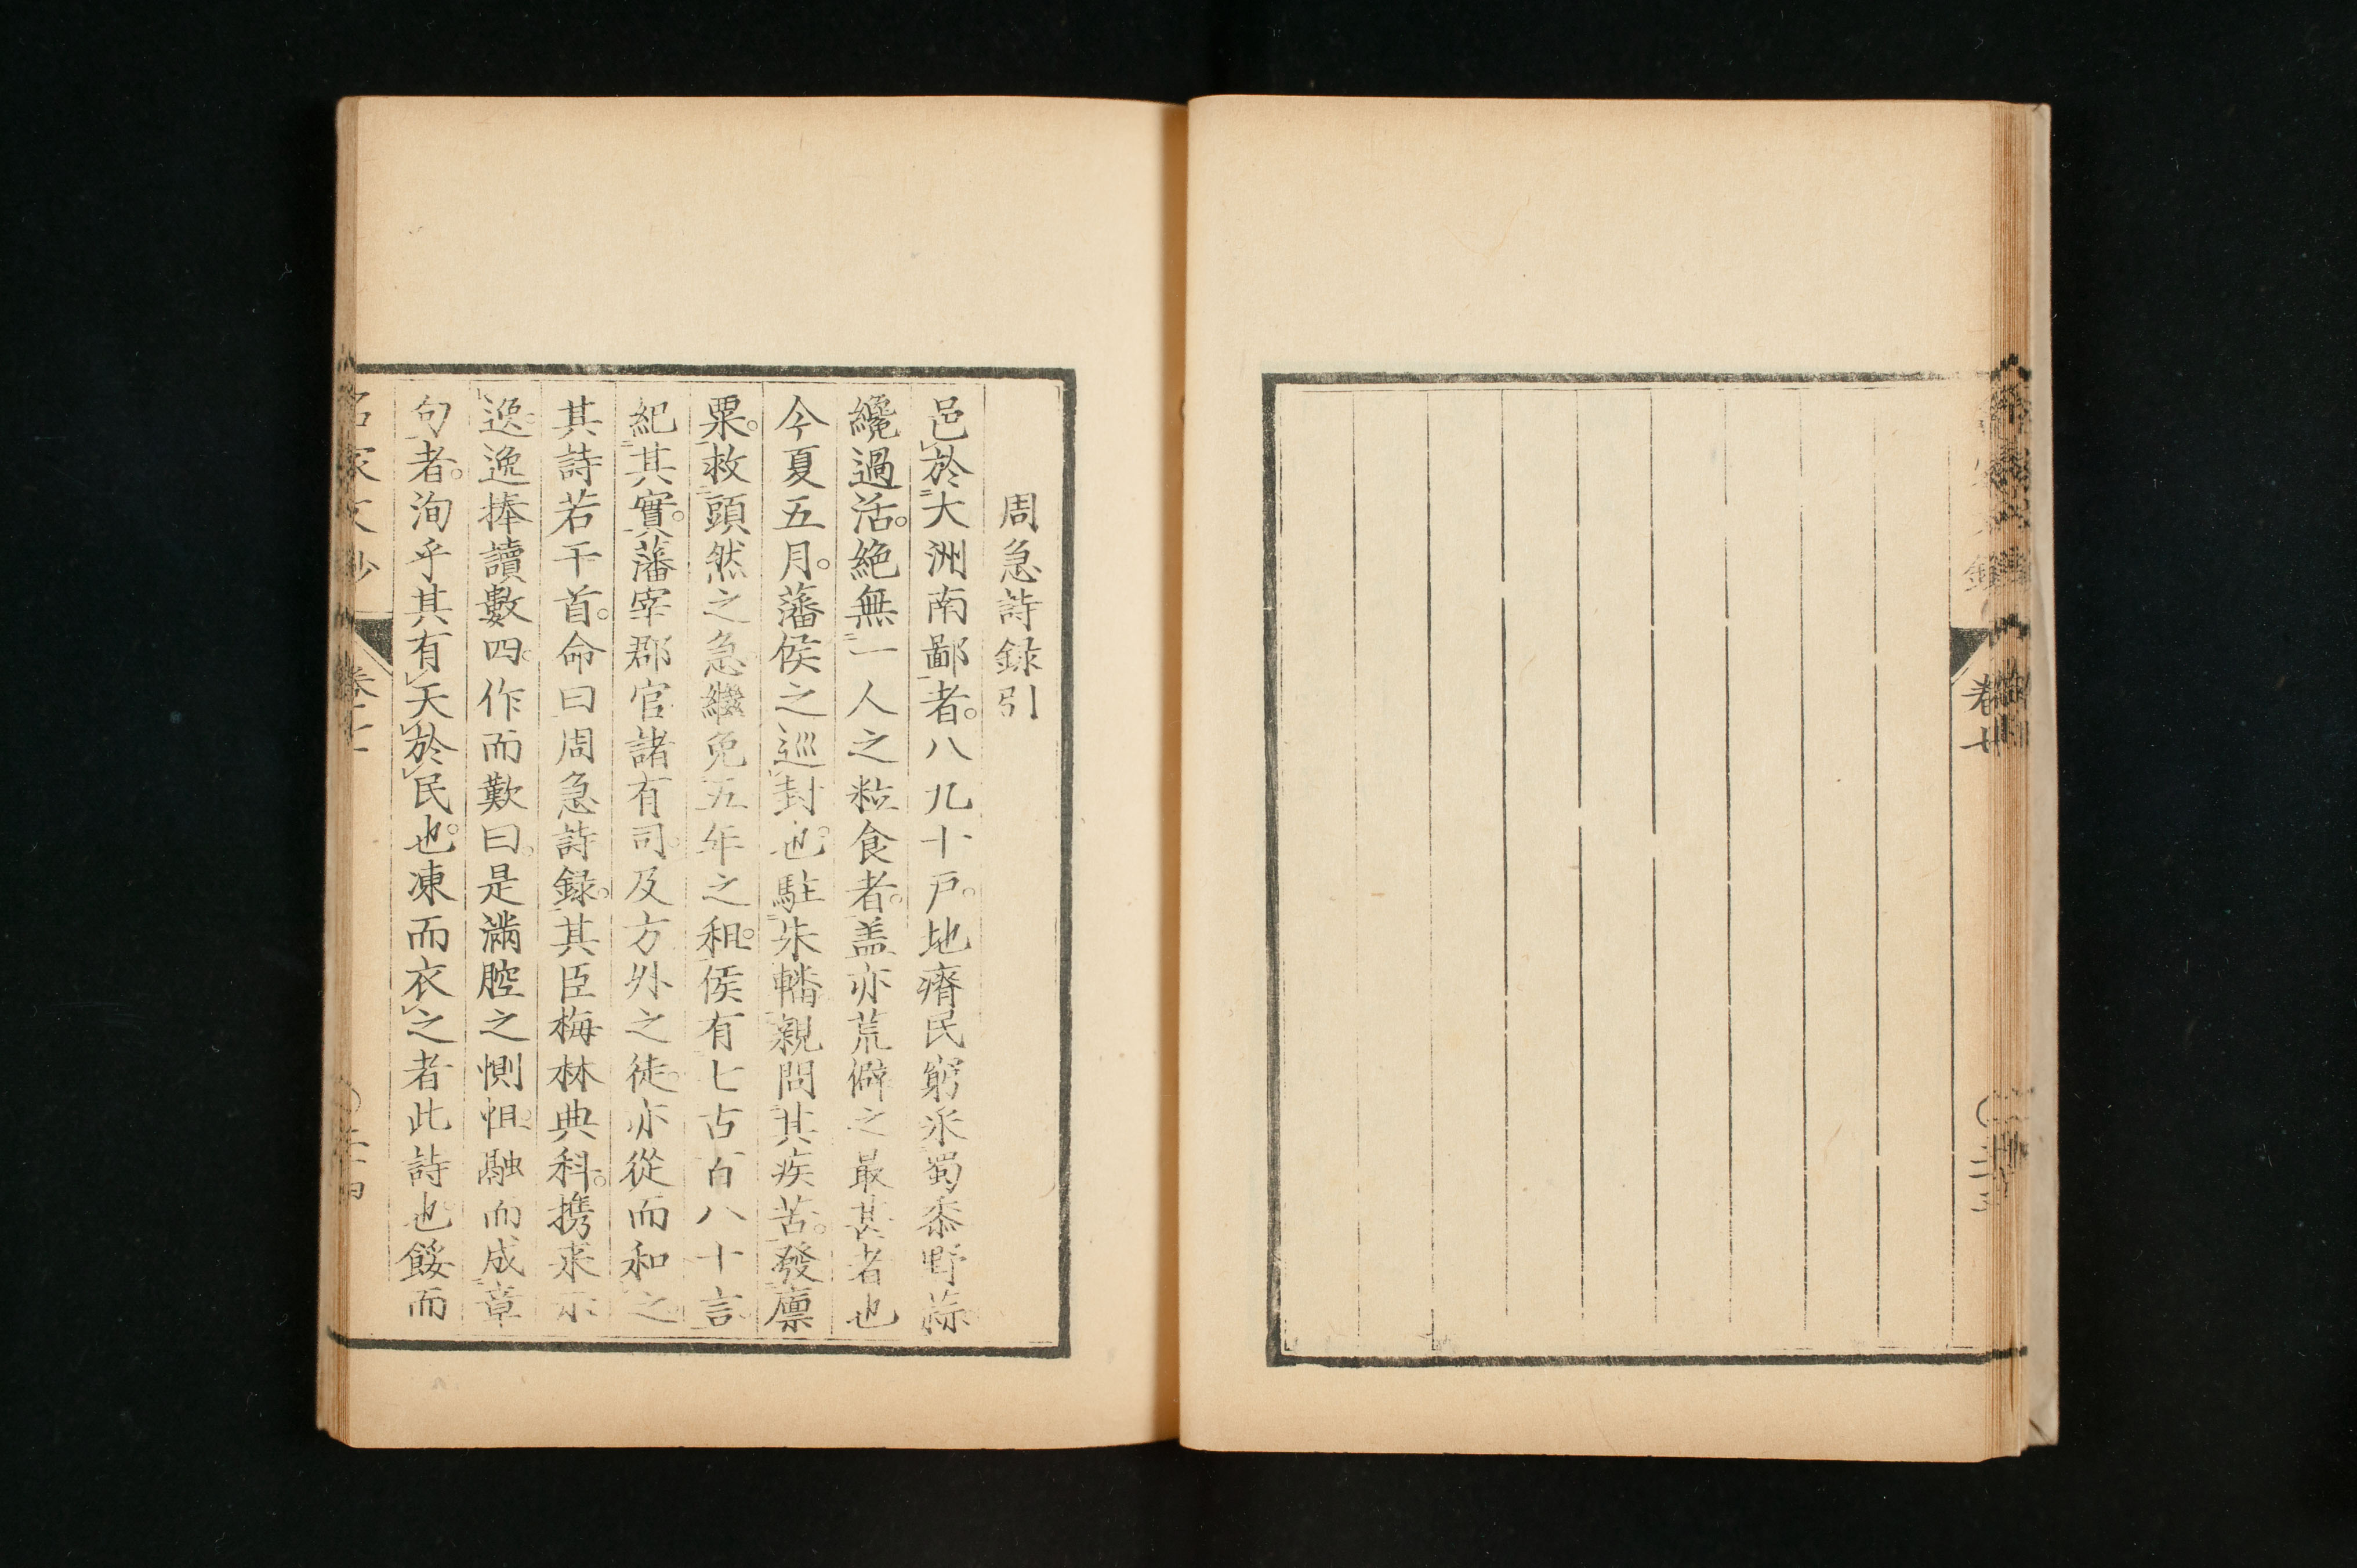 卷十
周急詩録引
邑於大洲南鄙者。八九十戸。地瘠民窮。采蜀黍野蒜
纔過活。絶無一人之粒食者。盖亦荒僻之最甚者也
今夏五月。藩侯之巡封也。駐朱轓親問其疾苦。發廪
粟。救頭然之急。繼免五年之租。侯有七古百八十言
紀其實。藩宰郡官諸有司。及方外之徒。亦從而和之
其詩若干首。命曰周急詩録。其臣梅林典科。携来示
逸。逸捧讀數四。作而歎曰。是滿腔之惻怛。融而成章
句者。洵乎其有天於民也。凍而衣之者此詩也。餒而
名家文抄
卷十